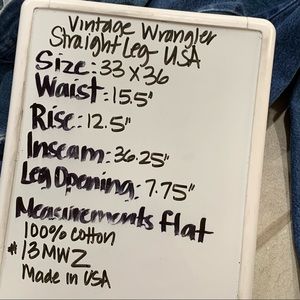 Vintage Wrangler
Straight Leg USA
Size: 33 x 36
Waist: 15.5"
Rise: 12.5"
Inseam: 36.25"
Leg Opening: 7.75"
Measurements flat
100% cotton
#13MWZ
Made in USA